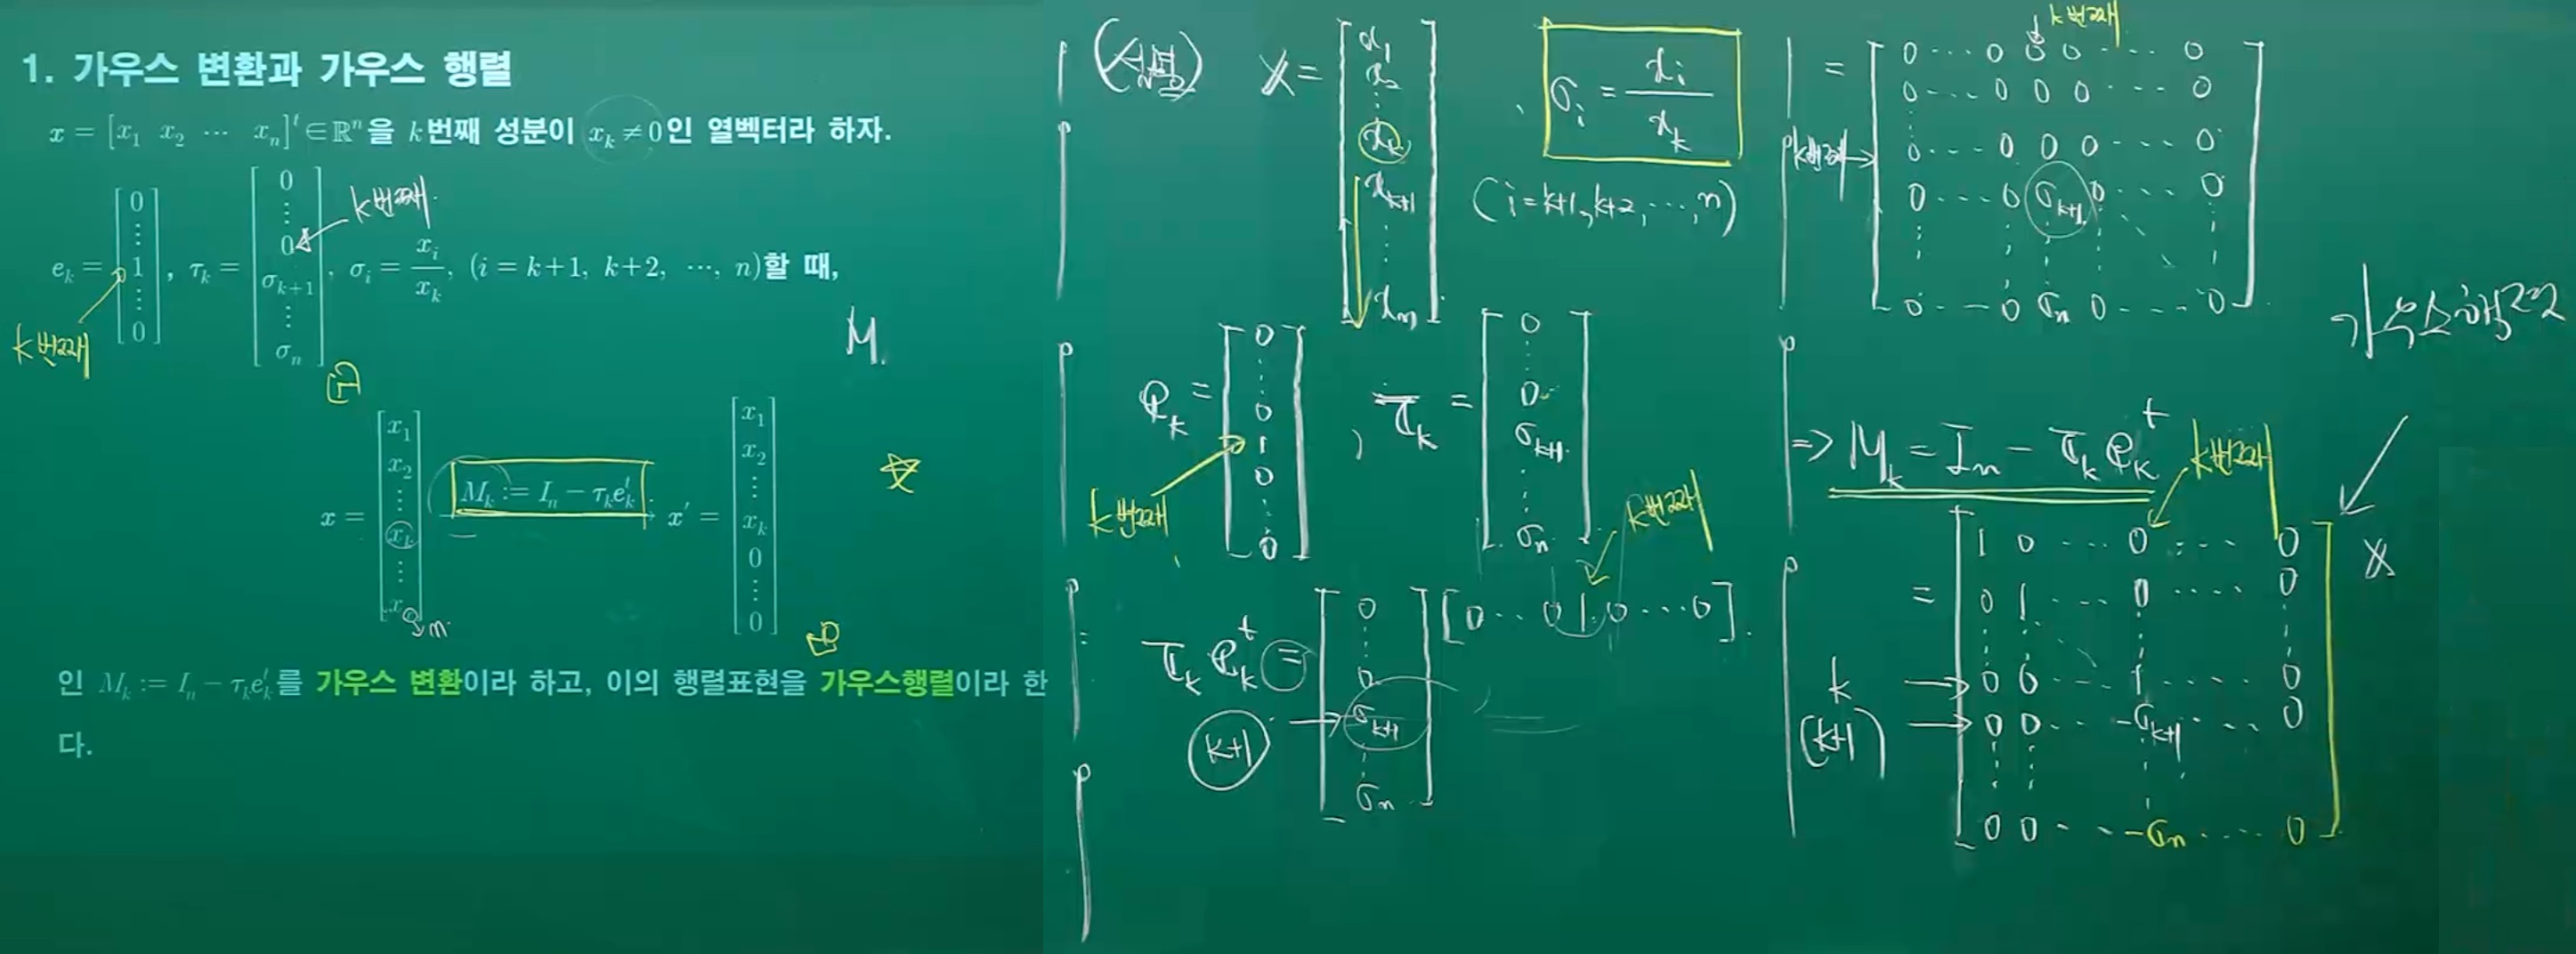 1. 가우스 변환과 가우스 행렬
x = [x₁ x₂ ⋯ xₙ]ᵗ ∈ ℝⁿ을 k번째 성분이 xₖ ≠ 0인 열벡터라 하자.
k번째
eₖ = [0 ⋮ 1 ⋮ 0], τₖ = [0 ⋮ 0 σₖ₊₁ ⋮ σₙ], σᵢ = xᵢ/xₖ, (i = k+1, k+2, ⋯, n)할 때,
k번째
M
x = [x₁ x₂ ⋮ xₖ ⋮ xₙ] Mₖ := Iₙ − τₖeₖᵗ → x′ = [x₁ x₂ ⋮ xₖ 0 ⋮ 0]
n
인 Mₖ := Iₙ − τₖeₖᵗ를 가우스 변환이라 하고, 이의 행렬표현을 가우스행렬이라 한
다.
(설명) x = [x₁ x₂ ⋮ xₖ xₖ₊₁ ⋮ xₙ], σᵢ = xᵢ/xₖ
(i = k+1, k+2, ⋯, n)
eₖ = [0 ⋮ 0 1 0 ⋮ 0], τₖ = [0 ⋮ 0 σₖ₊₁ ⋮ σₙ]
k번째
k번째
τₖ eₖᵗ = [0 ⋮ 0 σₖ₊₁ ⋮ σₙ] [0 ⋯ 0 1 0 ⋯ 0]
k+1
k번째
= [0 ⋯ 0 0 0 ⋯ 0
0 ⋯ 0 0 0 ⋯ 0
k번째 → 0 ⋯ 0 0 0 ⋯ 0
0 ⋯ 0 σₖ₊₁ 0 ⋯ 0
0 ⋯ 0 σₙ 0 ⋯ 0]
가우스행렬
⇒ Mₖ = Iₙ − τₖ eₖᵗ
k번째
= [1 0 ⋯ 0 ⋯ 0
0 1 ⋯ 0 ⋯ 0
k → 0 0 ⋯ 1 ⋯ 0
(k+1) → 0 0 ⋯ −σₖ₊₁ ⋯ 0
0 0 ⋯ −σₙ ⋯ 0] x